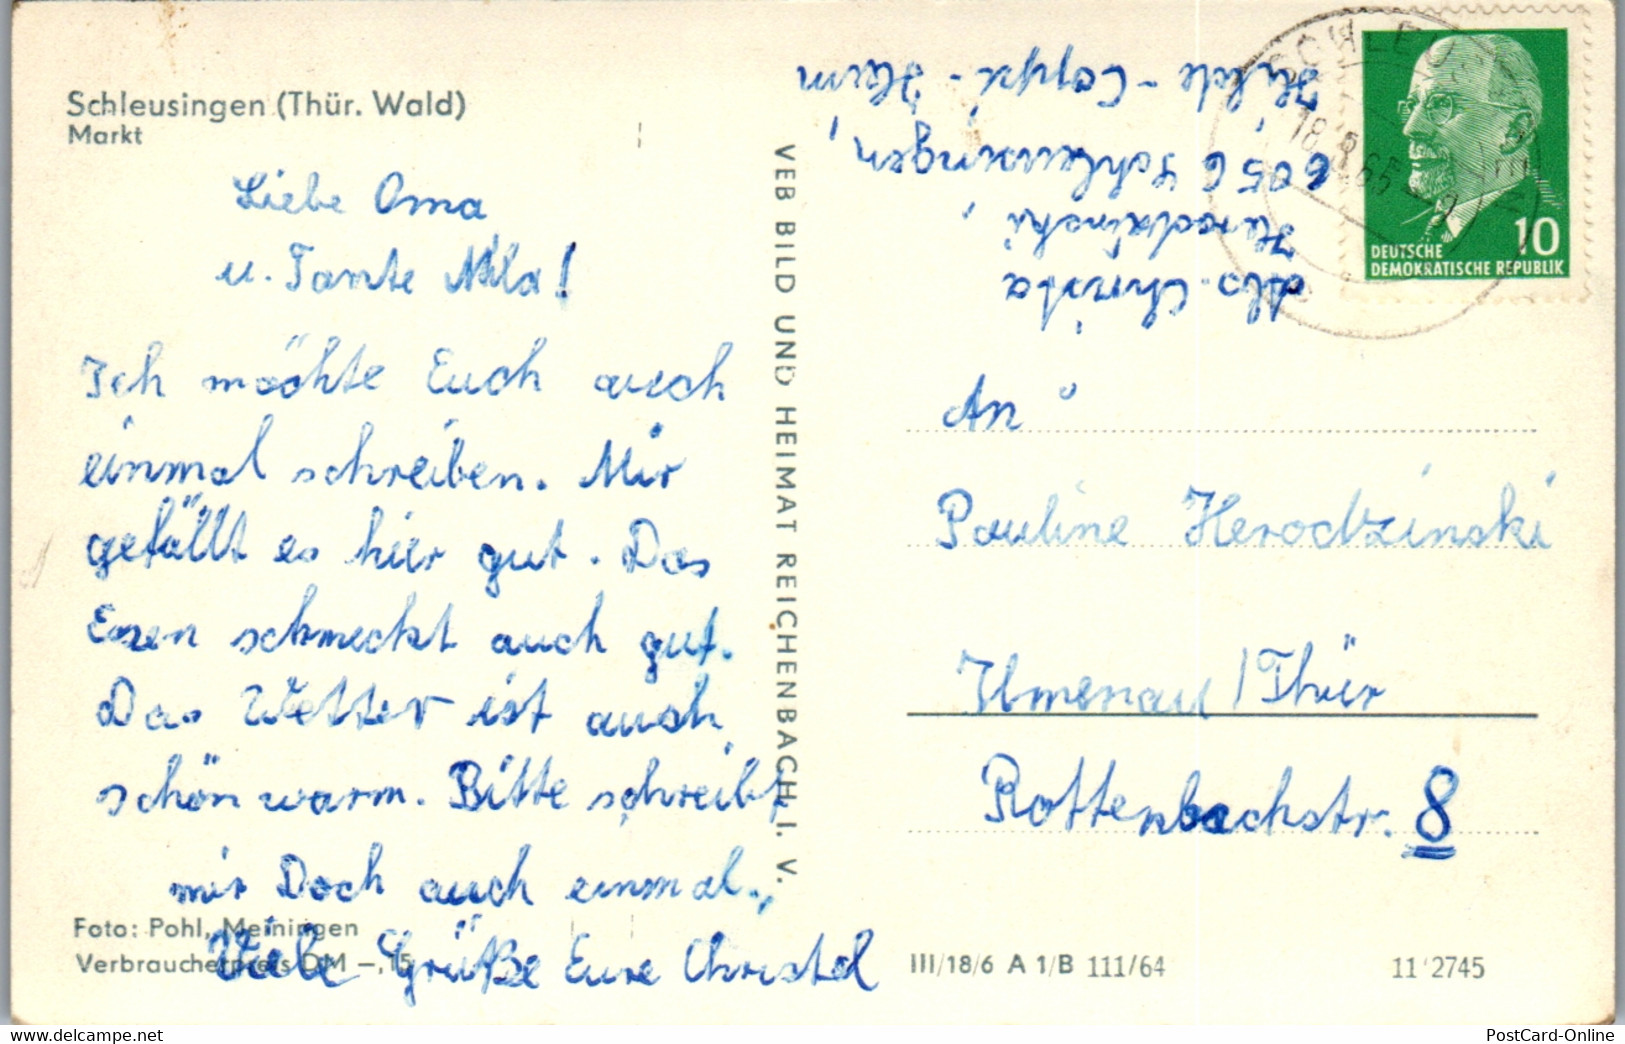 Schleusingen (Thür. Wald)
Markt
Liebe Oma
u. Tante Mila!
Ich möchte Euch auch
einmal schreiben. Mir
gefällt es hier gut. Das
Essen schmeckt auch gut.
Das Wetter ist auch
schön warm. Bitte schreibt
mir Doch auch einmal.
Viele Grüße Eure Christel
Foto: Pohl, Meiningen
Verbraucherpreis DM -,15
VEB BILD UND HEIMAT REICHENBACH I. V.
Abs. Christa
Herodzinski,
6056 Schleusingen,
Hilde-Coppi-Heim
18. 8. 65
10
DEUTSCHE
DEMOKRATISCHE REPUBLIK
An
Pauline Herodzinski
Ilmenau/Thür
Rottenbachstr. 8
III/18/6 A 1/B 111/64
11'2745
www.delcampe.net
PostCard-Online